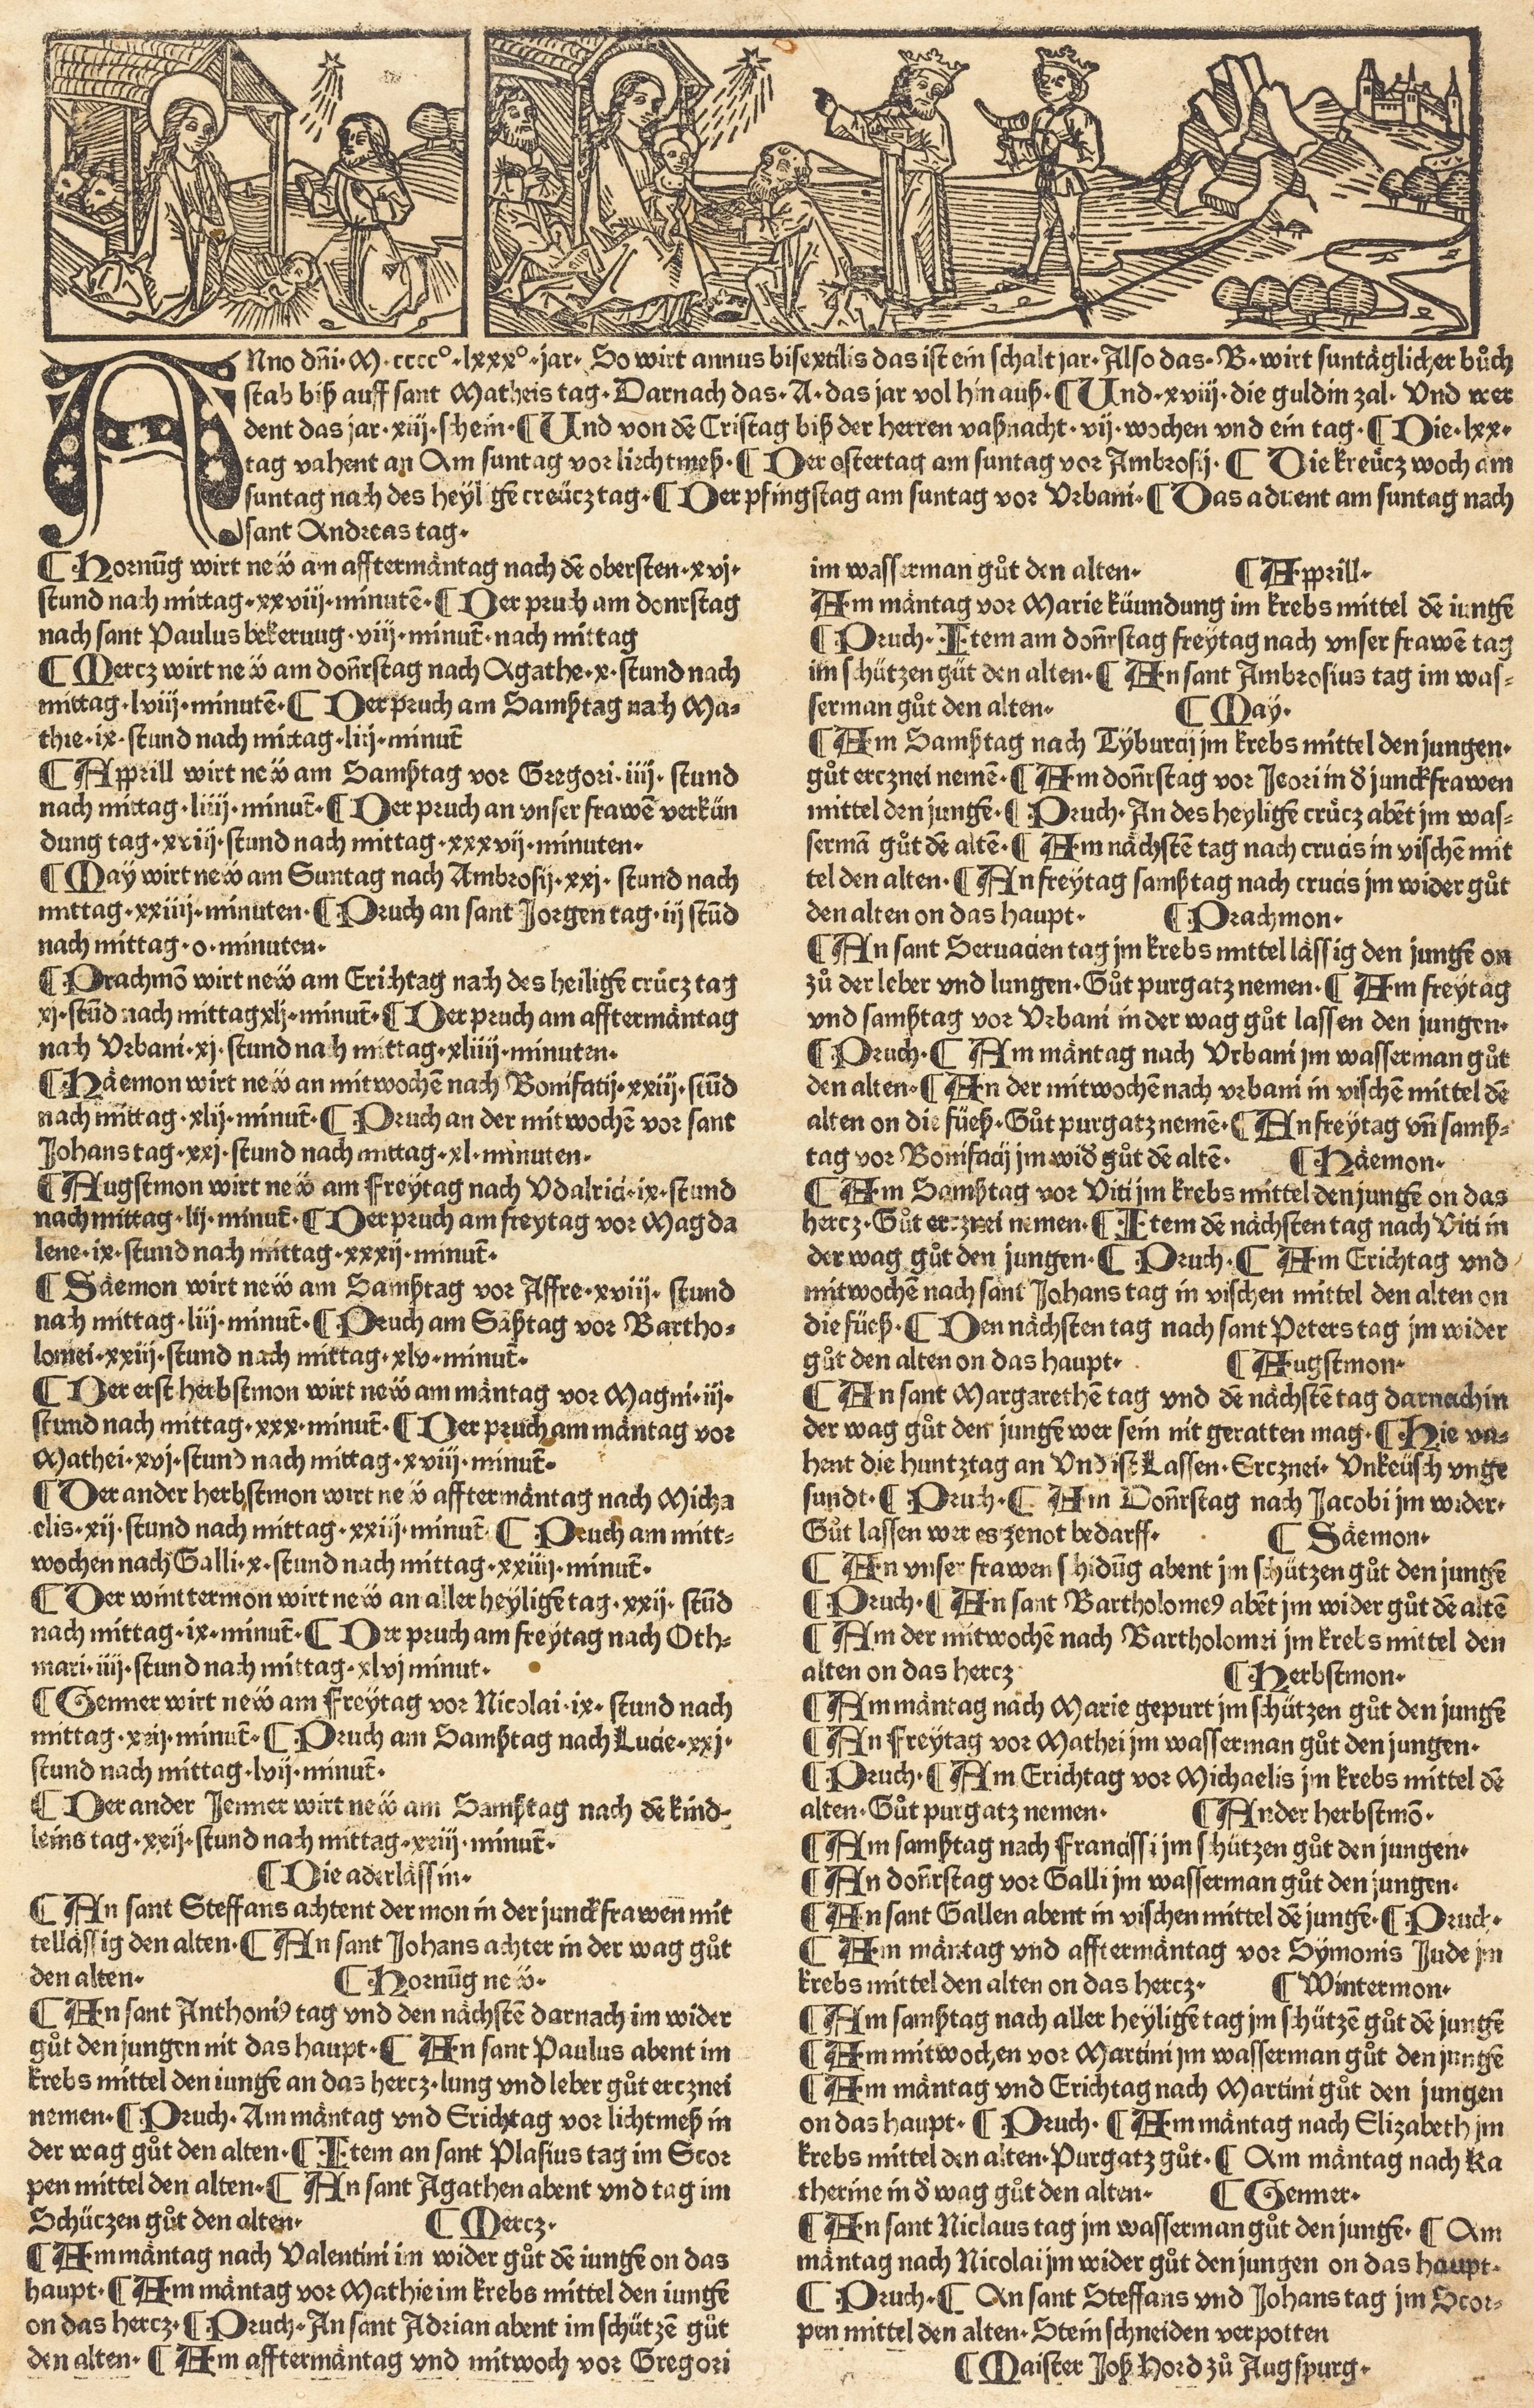 ANno dn̄i·M·cccc°·lxxx°·jar· So wirt annus bisextilis das ist ein schalt jar·Also das·B·wirt suntäglicher bůch
stab biß auff sant Matheis tag·Darnach das·A·das jar vol hin auß·¶Und·xviij·die guldin zal· Vnd wer
dent das jar·xiij·schein·¶Und von dē Cristag biß der herren vaßnacht·vij·wochen vnd ein tag·¶Die·lxx·
tag vahent an Am suntag vor liechtmeß·¶Der ostertag am suntag vor Ambrosij·¶ Die kreücz woch am
suntag nach des heyl gē creücz tag·¶Der pfingstag am suntag vor Vrbani·¶Das aduent am suntag nach
sant Andreas tag·
¶Hornūg wirt neẅ am afftermäntag nach dē obersten·xvj·
stund nach mittag·xxviij·minutē·¶Der pruch am donrstag
nach sant Paulus bekerung·viij·minut̄·nach mittag
¶Mercz wirt neẅ am don̄rstag nach Agathe·x·stund nach
mittag·lviij·minutē·¶ Der pruch am Samßtag nach Ma⸗
thie·ix·stund nach mittag·liij·minut̄
¶Apprill wirt neẅ am Samßtag vor Gregori·iiij· stund
nach mittag·liiij·minut̄·¶Der pruch an vnser frawē verkün
dung tag·xxiij·stund nach mittag·xxxvij·minuten·
¶May wirt neẅ am Suntag nach Ambrosij·xxj· stund nach
mittag·xxiiij·minuten·¶Pruch an sant Jorgen tag·iij stūd
nach mittag·o·minuten·
¶Prachmō wirt neẅ am Erichtag nach des heiligē crücz tag
xj·stūd nach mittag xlj·minut̄·¶Der pruch am afftermäntag
nach Vrbani·xj·stund nach mittag·xliiij·minuten·
¶Häemon wirt neẅ an mitwochē nach Bonifatij·xxiij·stūd
nach mittag·xlij·minut̄·¶Pruch an der mitwochē vor sant
Johans tag·xxj·stund nach mittag·xl·minuten·
¶Augstmon wirt neẅ am Freytag nach Vdalrici·ix·stund
nach mittag·lij·minut̄·¶Der pruch am freytag vor Magda
lene·ix·stund nach mittag·xxxij·minut̄·
¶Säemon wirt neẅ am Samßtag vor Affre·xviij· stund
nach mittag·liij·minut̄·¶Pruch am Saßtag vor Bartho⸗
lomei·xxiij·stund nach mittag·xlv·minut̄·
¶Der erst herbstmon wirt neẅ am mäntag vor Magni·iij·
stund nach mittag·xxx·minut̄·¶Der pruch am mäntag vor
Mathei·xvj·stund nach mittag·xviij·minut̄·
¶Der ander herbstmon wirt neẅ afftermäntag nach Micha
elis·xij·stund nach mittag·xxiij·minut̄ ¶Pruch am mitt⸗
wochen nach Galli·x·stund nach mittag·xxiiij·minut̄·
¶Der wintermon wirt neẅ an aller heyligē tag·xxij· stūd
nach mittag·ix·minut̄·¶Der pruch am freytag nach Oth⸗
mari·iiij·stund nach mittag·xlvj minut·
¶Genner wirt neẅ am Freytag vor Nicolai·ix· stund nach
mittag· minut̄·¶Pruch am Samßtag nach Lucie·xxj·
stund nach mittag·lvij·minut̄·
¶Der ander Jenner wirt neẅ am Samßtag nach dē kind⸗
leins tag·xxij·stund nach mittag·xxiij·minut̄·
¶Die aderlässin·
¶An sant Steffans achtent der mon in der junckfrawen mit
tellässig den alten·¶An sant Johans achter in der wag gůt
den alten·
¶Hornūg neẅ·
¶An sant Anthoniꝰ tag vnd den nächstē darnach im wider
gůt den jungen nit das haupt·¶An sant Paulus abent im
krebs mittel den iungē an das hercz·lung vnd leber gůt ercznei
nemen·¶Pruch·Am mäntag vnd Erichtag vor lichtmeß in
der wag gůt den alten·¶Item an sant Plasius tag im Scor
pen mittel den alten·¶An sant Agathen abent vnd tag im
Schüczen gůt den alten·
¶Mercz·
¶Am mäntag nach Valentini im wider gůt dē iungē on das
haupt·¶Am mäntag vor Mathie im krebs mittel den iungē
on das hercz·¶Pruch·An sant Adrian abent im schützē gůt
den alten·¶Am afftermäntag vnd mitwoch vor Gregori
im wasserman gůt den alten·
¶Apprill·
Am mäntag vor Marie küundung im krebs mittel dē iungē
¶Pruch·Item am don̄rstag freytag nach vnser frawē tag
im schützen gůt den alten·¶An sant Ambrosius tag im was⸗
serman gůt den alten·
¶May·
¶Am Samßtag nach Tyburcij jm krebs mittel den jungen·
gůt ercznei nemē·¶Am don̄rstag vor Jeori in d̄ junckfrawen
mittel den jungē·¶Pruch·An des heyligē crücz abēt jm was⸗
sermā gůt dē altē·¶Am nächstē tag nach crucis in vischē mit
tel den alten·¶An freytag samßtag nach crucis jm wider gůt
den alten on das haupt·
¶Prachmon·
¶An sant Seruacien tag jm krebs mittel lässig den jungē on
zů der leber vnd lungen·Gůt purgatz nemen·¶Am freytag
vnd samßtag vor Vrbani in der wag gůt lassen den jungen·
¶Pruch·¶Am mäntag nach Vrbani jm wasserman gůt
den alten·¶An der mitwochē nach vrbani in vischē mittel dē
alten on die füeß·Gůt purgatz nemē·¶An freytag vn̄ samß⸗
tag vor Bonifacij jm wid̄ gůt dē altē·
¶Häemon·
¶Am Samßtag vor Viti jm krebs mittel den jungē on das
hercz·Gůt ercznei nemen·¶Item dē nächsten tag nach Viti in
der wag gůt den jungen·¶Pruch·¶Am Erichtag vnd
mitwochē nach sant Johans tag in vischen mittel den alten on
die füeß·¶Den nächsten tag nach sant Peters tag jm wider
gůt den alten on das haupt·
¶Augstmon·
¶An sant Margarethē tag vnd dē nächstē tag darnach in
der wag gůt den jungē wer sein nit geratten mag·¶Hie va⸗
hent die huntztag an Vnd ist Lassen·Ercznei·Vnkeüsch vnge
sundt·¶Pruch·¶Am Don̄rstag nach Jacobi jm wider·
Gůt lassen wer es ze not bedarff·
¶Säemon·
¶An vnser frawen schidūg abent jm schützen gůt den jungē
¶Pruch·¶An sant Bartholomeꝰ abēt jm wider gůt dē altē
¶Am der mitwochē nach Bartholomei jm krebs mittel den
alten on das hercz
¶Herbstmon·
¶Am mäntag nach Marie gepurt jm schützen gůt den jungē
¶An Freytag vor Mathei jm wasserman gůt den jungen·
¶Pruch·¶Am Erichtag vor Michaelis jm krebs mittel dē
alten·Gůt purgatz nemen·
¶Ander herbstmō·
¶Am samßtag nach Francissi jm schützen gůt den jungen·
¶An don̄rstag vor Galli jm wasserman gůt den jungen·
¶An sant Gallen abent in vischen mittel dē jungē·¶Pruch·
¶Am mäntag vnd afftermäntag vor Symonis Jude jm
krebs mittel den alten on das hercz·
¶Wintermon·
¶Am samßtag nach aller heyligē tag jm schützē gůt dē jungē
¶Am mitwochen vor Martini jm wasserman gůt den jungē
¶Am mäntag vnd Erichtag nach Martini gůt den jungen
on das haupt·¶Pruch·¶Am mäntag nach Elizabeth jm
krebs mittel den alten·Purgatz gůt·¶Am mäntag nach Ka
therine in d̄ wag gůt den alten·
¶Genner·
¶An sant Niclaus tag jm wasserman gůt den jungē·¶Am
mäntag nach Nicolai jm wider gůt den jungen on das haupt·
¶Pruch·¶An sant Steffans vnd Johans tag jm Scor⸗
pen mittel den alten·Stein schneiden verpotten
¶Maister Joß Hord zů Augspurg·